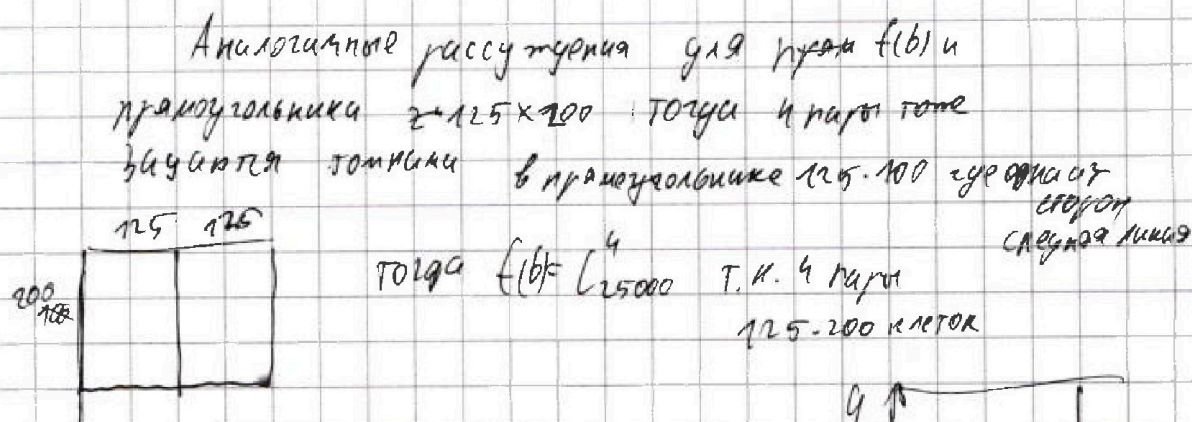 Аналогичные рассуждения для f(b) и
прямоугольника 125×200 тогда 4 пары тоже
задаются точками в прямоугольнике 125·100 где одна из
сторон
средняя линия
125 125
200
тогда f(b)= C⁴₂₅₀₀₀ т.к. 4 пары
125·200 клеток